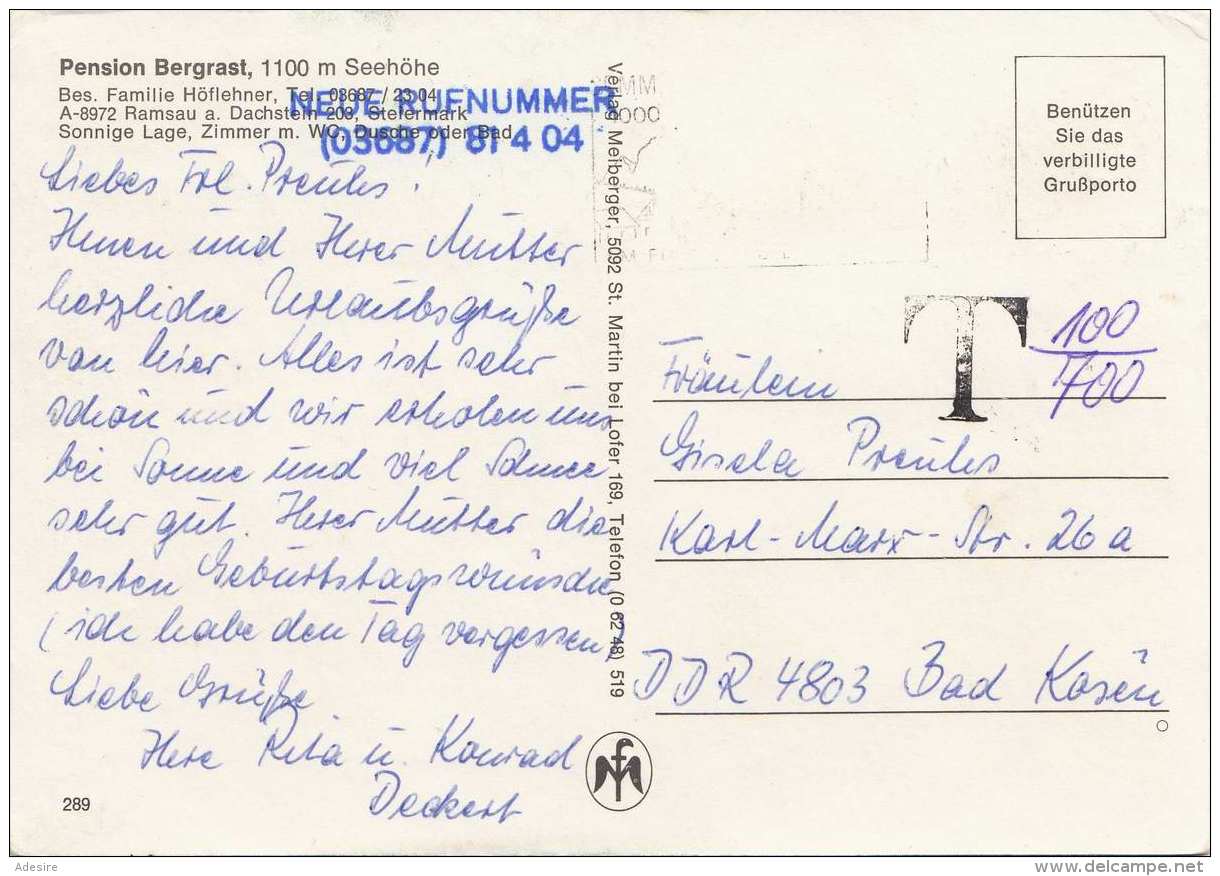 Pension Bergrast, 1100 m Seehöhe
Bes. Familie Höflehner, Tel. 03687 / 23 04
A-8972 Ramsau a. Dachstein 203, Steiermark
Sonnige Lage, Zimmer m. WC, Dusche oder Bad
NEUE RUFNUMMER
(03687) 81 4 04
Liebes Frl. Preuhs!
Ihnen und Ihrer Mutter
herzliche Urlaubsgrüße
von hier. Alles ist sehr
schön und wir erholen uns
bei Sonne und viel Schnee
sehr gut. Ihrer Mutter die
besten Geburtstagswünsche
(ich habe den Tag vergessen)
Liebe Grüße
Ihre Rita u. Konrad
Deckert
289
Verlag Meiberger, 5092 St. Martin bei Lofer 169, Telefon (0 62 48) 519
Benützen
Sie das
verbilligte
Grußporto
T
100
700
Fräulein
Gisela Preuhs
Karl-Marx-Str. 26a
DDR 4803 Bad Kösen
Adesire
www.delcampe.net